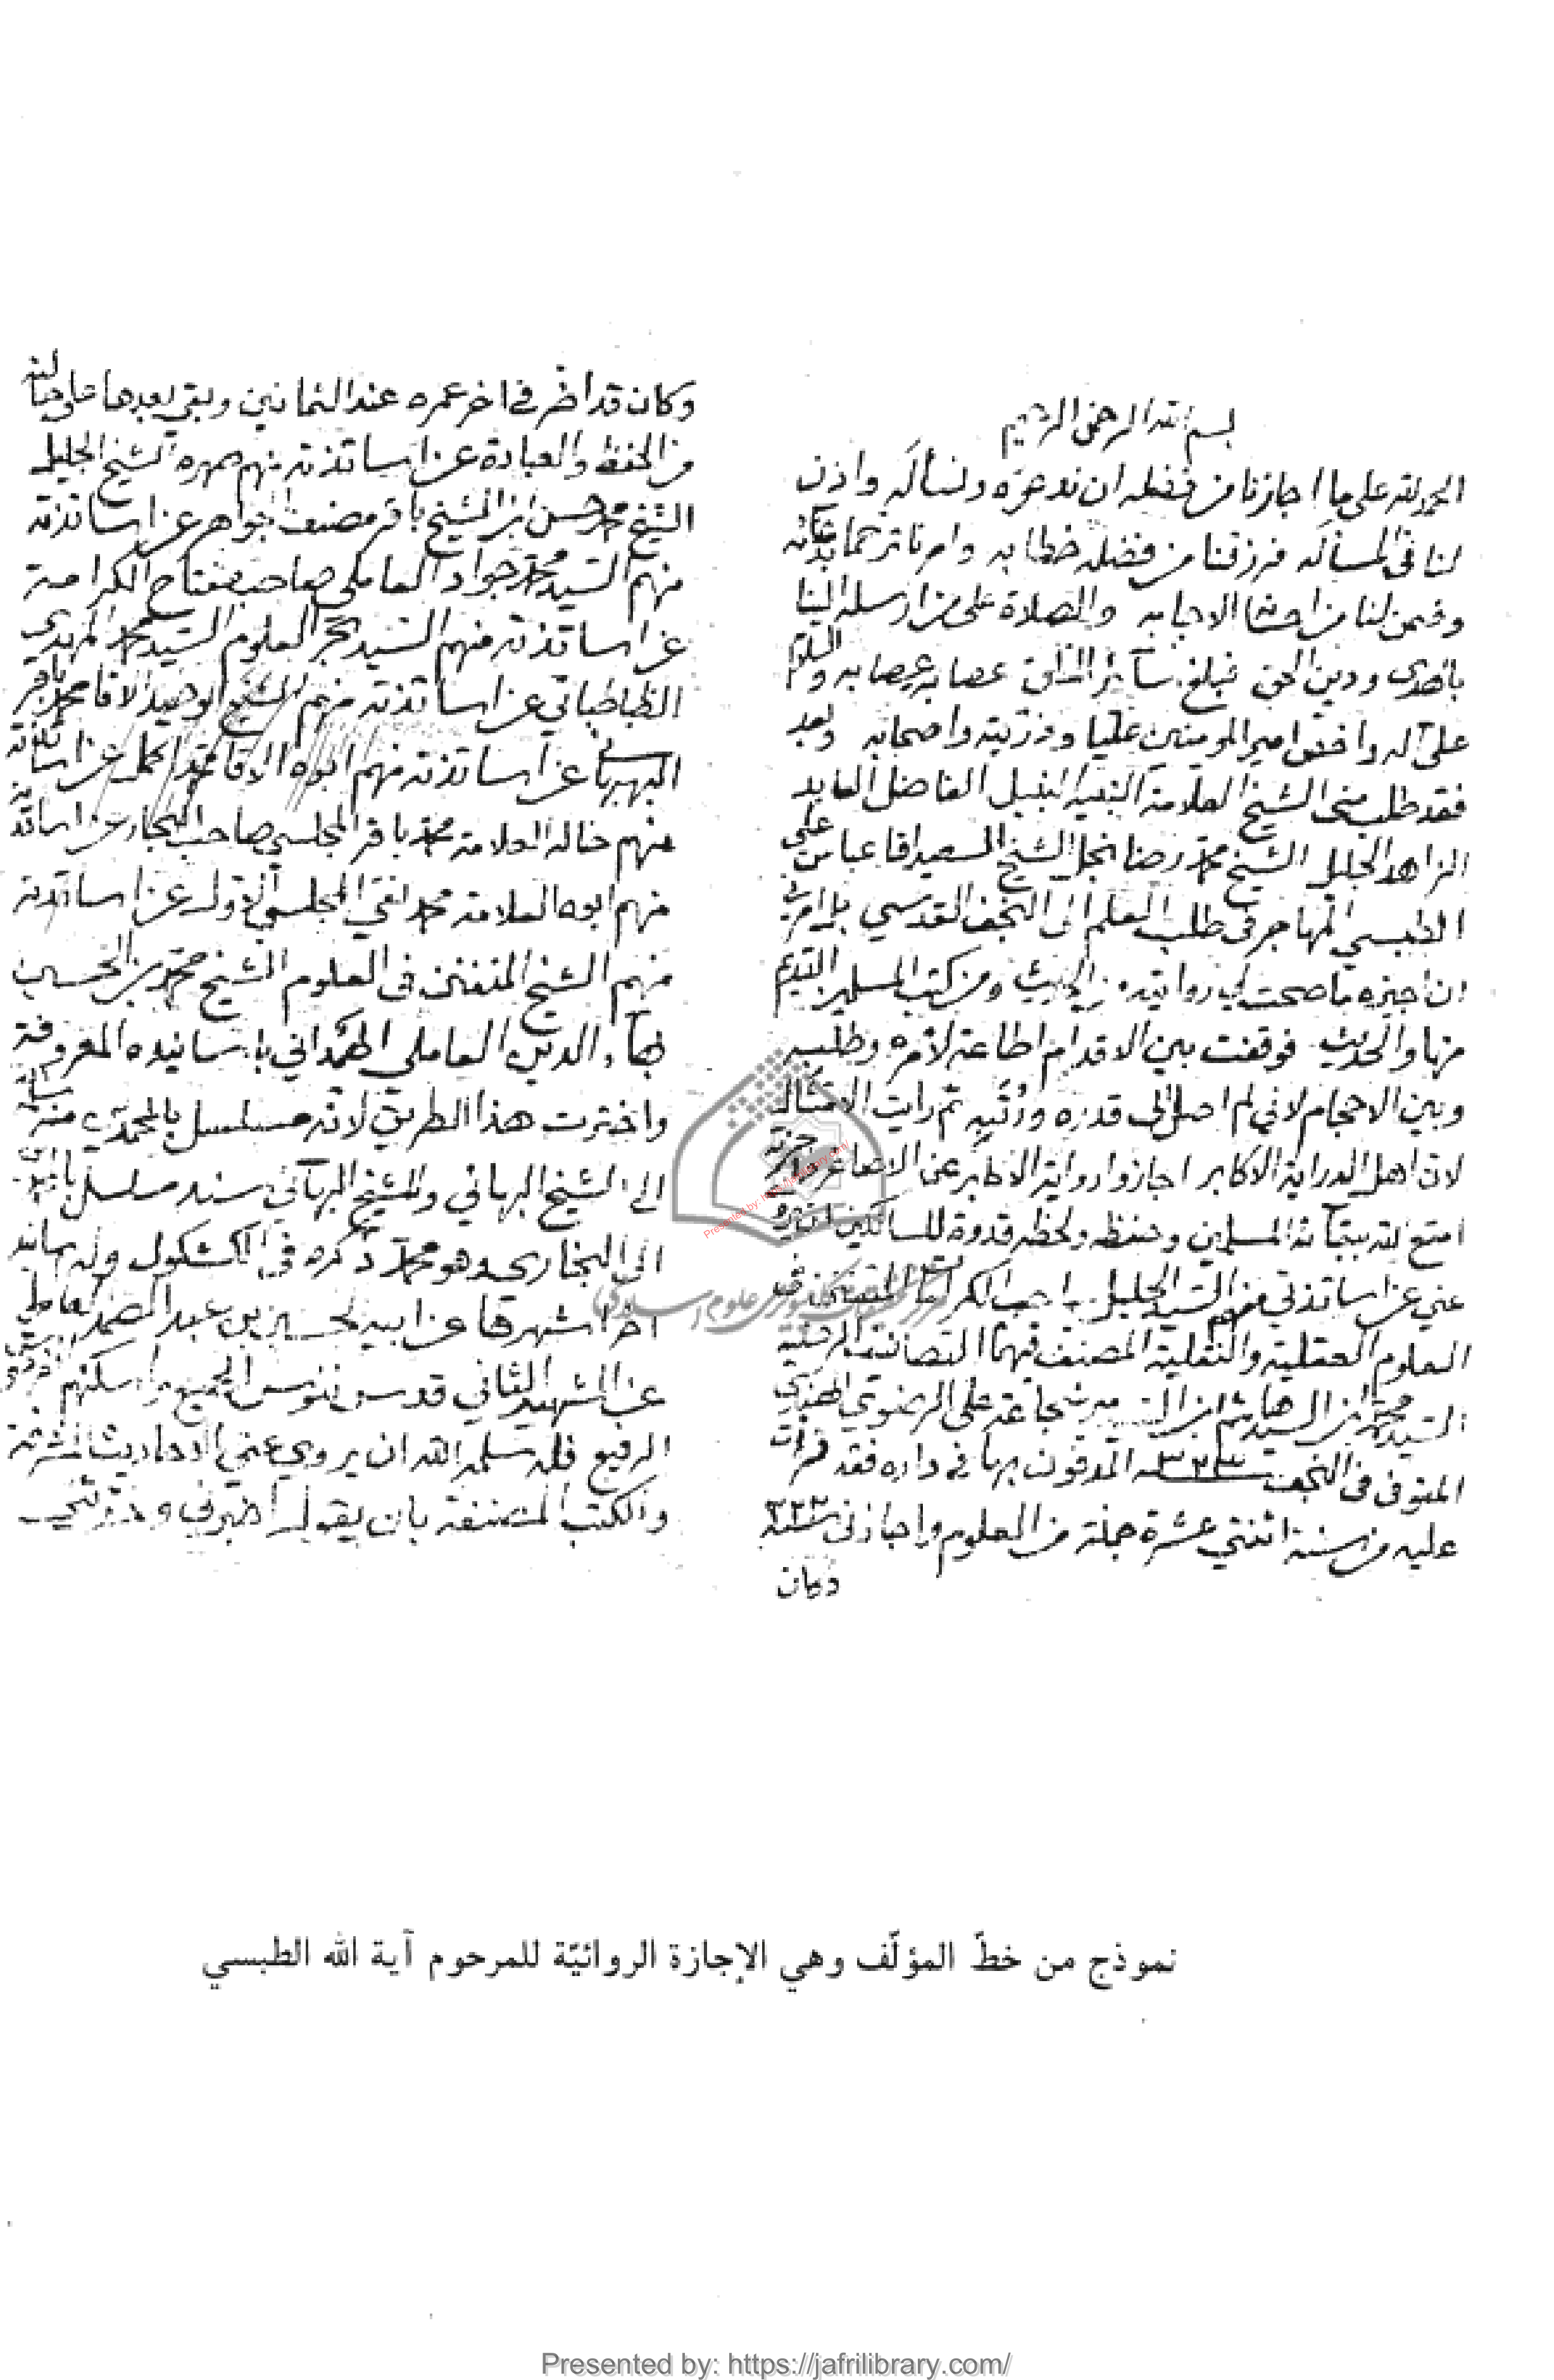 بسم الله الرحمن الرحيم
الحمد لله على ما اجازنا من فضله ان ندعوه ونسأله واذن
لنا فى المسأله فرزقنا من فضله خطابه وامرنا ترحما بدعائه
وضمن لنا من الاجابه والصلاة على من ارسله الينا
بالهدى ودين الحق فبلغ عصابه والسلام
على آله وا امير المومنين عليا وذريته واصحابه وبعد
فقد طلب منى الشيخ العلامة النبيه النبيل الفاضل العابد
الزاهد الجليل الشيخ محمد رضا نجل الشيخ السعيد اقا عباس على
الطبسي المهاجر فى طلب العلم الى النجف القدسي بل امرنى
ان اجيزه ما صحت لي روايته من الحديث ومن كتب المسلمين القديم
منها والحديث فوقفت بين الاقدام اطاعة لامره وطلبه
وبين الاحجام لانى لم اصل الى قدره ورتبه ثم رايت الامتثال
لان اهل الدراية الاكابر اجازوا رواية الاكابر عن الاصاغر واجزته
امتع الله ببقائه المسلمين وحفظه ولحظه قدوة للسالكين
عني عن اساتذتي منهم السيد الجليل صاحب الكرامات المتفنن فى
العلوم العقلية والنقلية المصنف فيهما التصانيف الرشيقة
السيد محمد ابن السيد هاشم ابن السيد مير شجاعة على الرضوي الهندي
المتوفى فى النجف سنة ١٣٢٣ المدفون بها فى داره فقد قرأت
عليه من سنة اثنتي عشرة جملة من العلوم واجازنى سنة ٣٢٢
وكان
وكان قد اضر في اخر عمره عند الثمانين وبقي بعدها على حالته
من الحفظ والعبادة عن اساتذته منهم صهره الشيخ الجليل
الشيخ محمد حسن ابن الشيخ باقر مصنف الجواهر عن اساتذته
منهم السيد محمد جواد العاملي صاحب مفتاح الكرامة
عن اساتذته منهم السيد بحر العلوم السيد محمد المهدي
الطباطبائي عن اساتذته منهم الشيخ الوحيد الاقا محمد باقر
البهبهاني عن اساتذته منهم ابوه الاقا محمد اكمل عن اساتذته
منهم خاله العلامة محمد باقر المجلسي صاحب البحار عن اساتذته
منهم ابوه العلامة محمد تقي المجلسي الاول عن اساتذته
منهم الشيخ المتفنن فى العلوم الشيخ محمد بن الحسين
بهاء الدين العاملي الهمداني باسانيده المعروفة
واخترت هذا الطريق لانه مسلسل بالمحمدي منه
الى الشيخ البهائي وللشيخ البهائى سند مسلسل
الى البخاري وهو محمد ذكره فى الكشكول وله اسانيد
اخر اشهرها عن ابيه الحسين بن عبد الصمد العاملي
عن الشهيد الثاني قدس نفوس الجميع واسكنهم
الرفيع فله سلمه الله ان يروي عني الاحاديث المشرفة
والكتب المصنفة بان يقول اخبرني
مركز تحقيقات كامپيوترى علوم اسلامى
Presented by: https://jafrilibrary.com/
نموذج من خطّ المؤلّف وهي الإجازة الروائيّة للمرحوم آية الله الطبسي
Presented by: https://jafrilibrary.com/